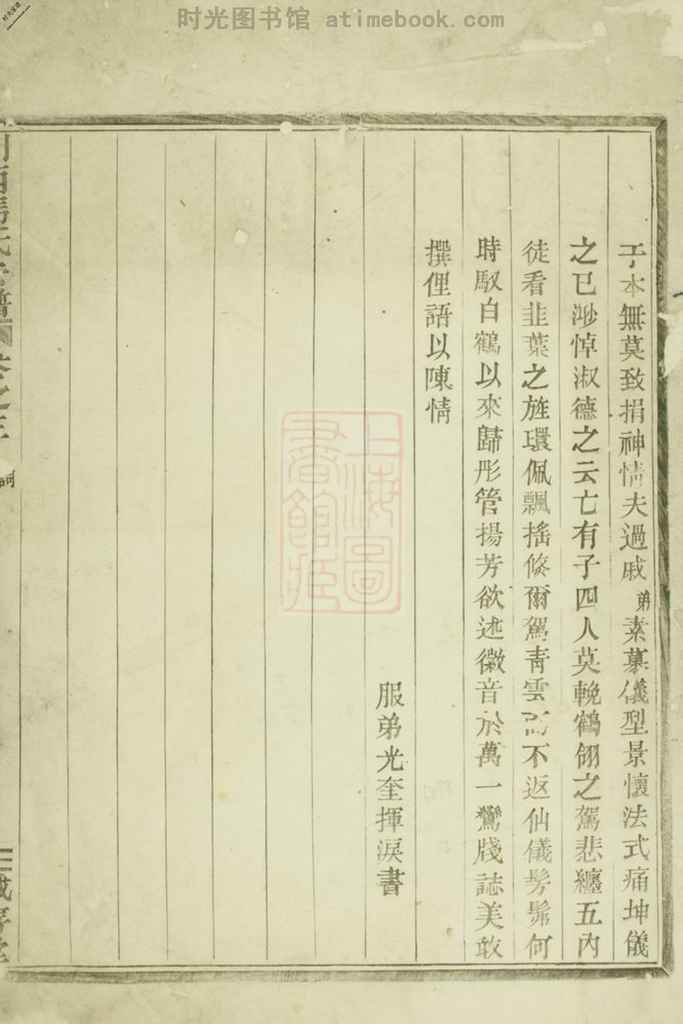 时光图书馆 atimebook.com
子本無莫致捐神情夫過戚弟素慕儀型景懷法式痛坤儀
之已渺悼淑德之云亡有子四人莫輓鶴翎之駕悲纏五內
徒看韭葉之旌環佩飄搖倐爾駕靑雲不返仙儀髣髴何
時馭白鶴以來歸彤管揚芳欲述徽音於萬一鸞牋誌美敢
撰俚語以陳情
服弟光奎揮淚書
上海圖
書館藏